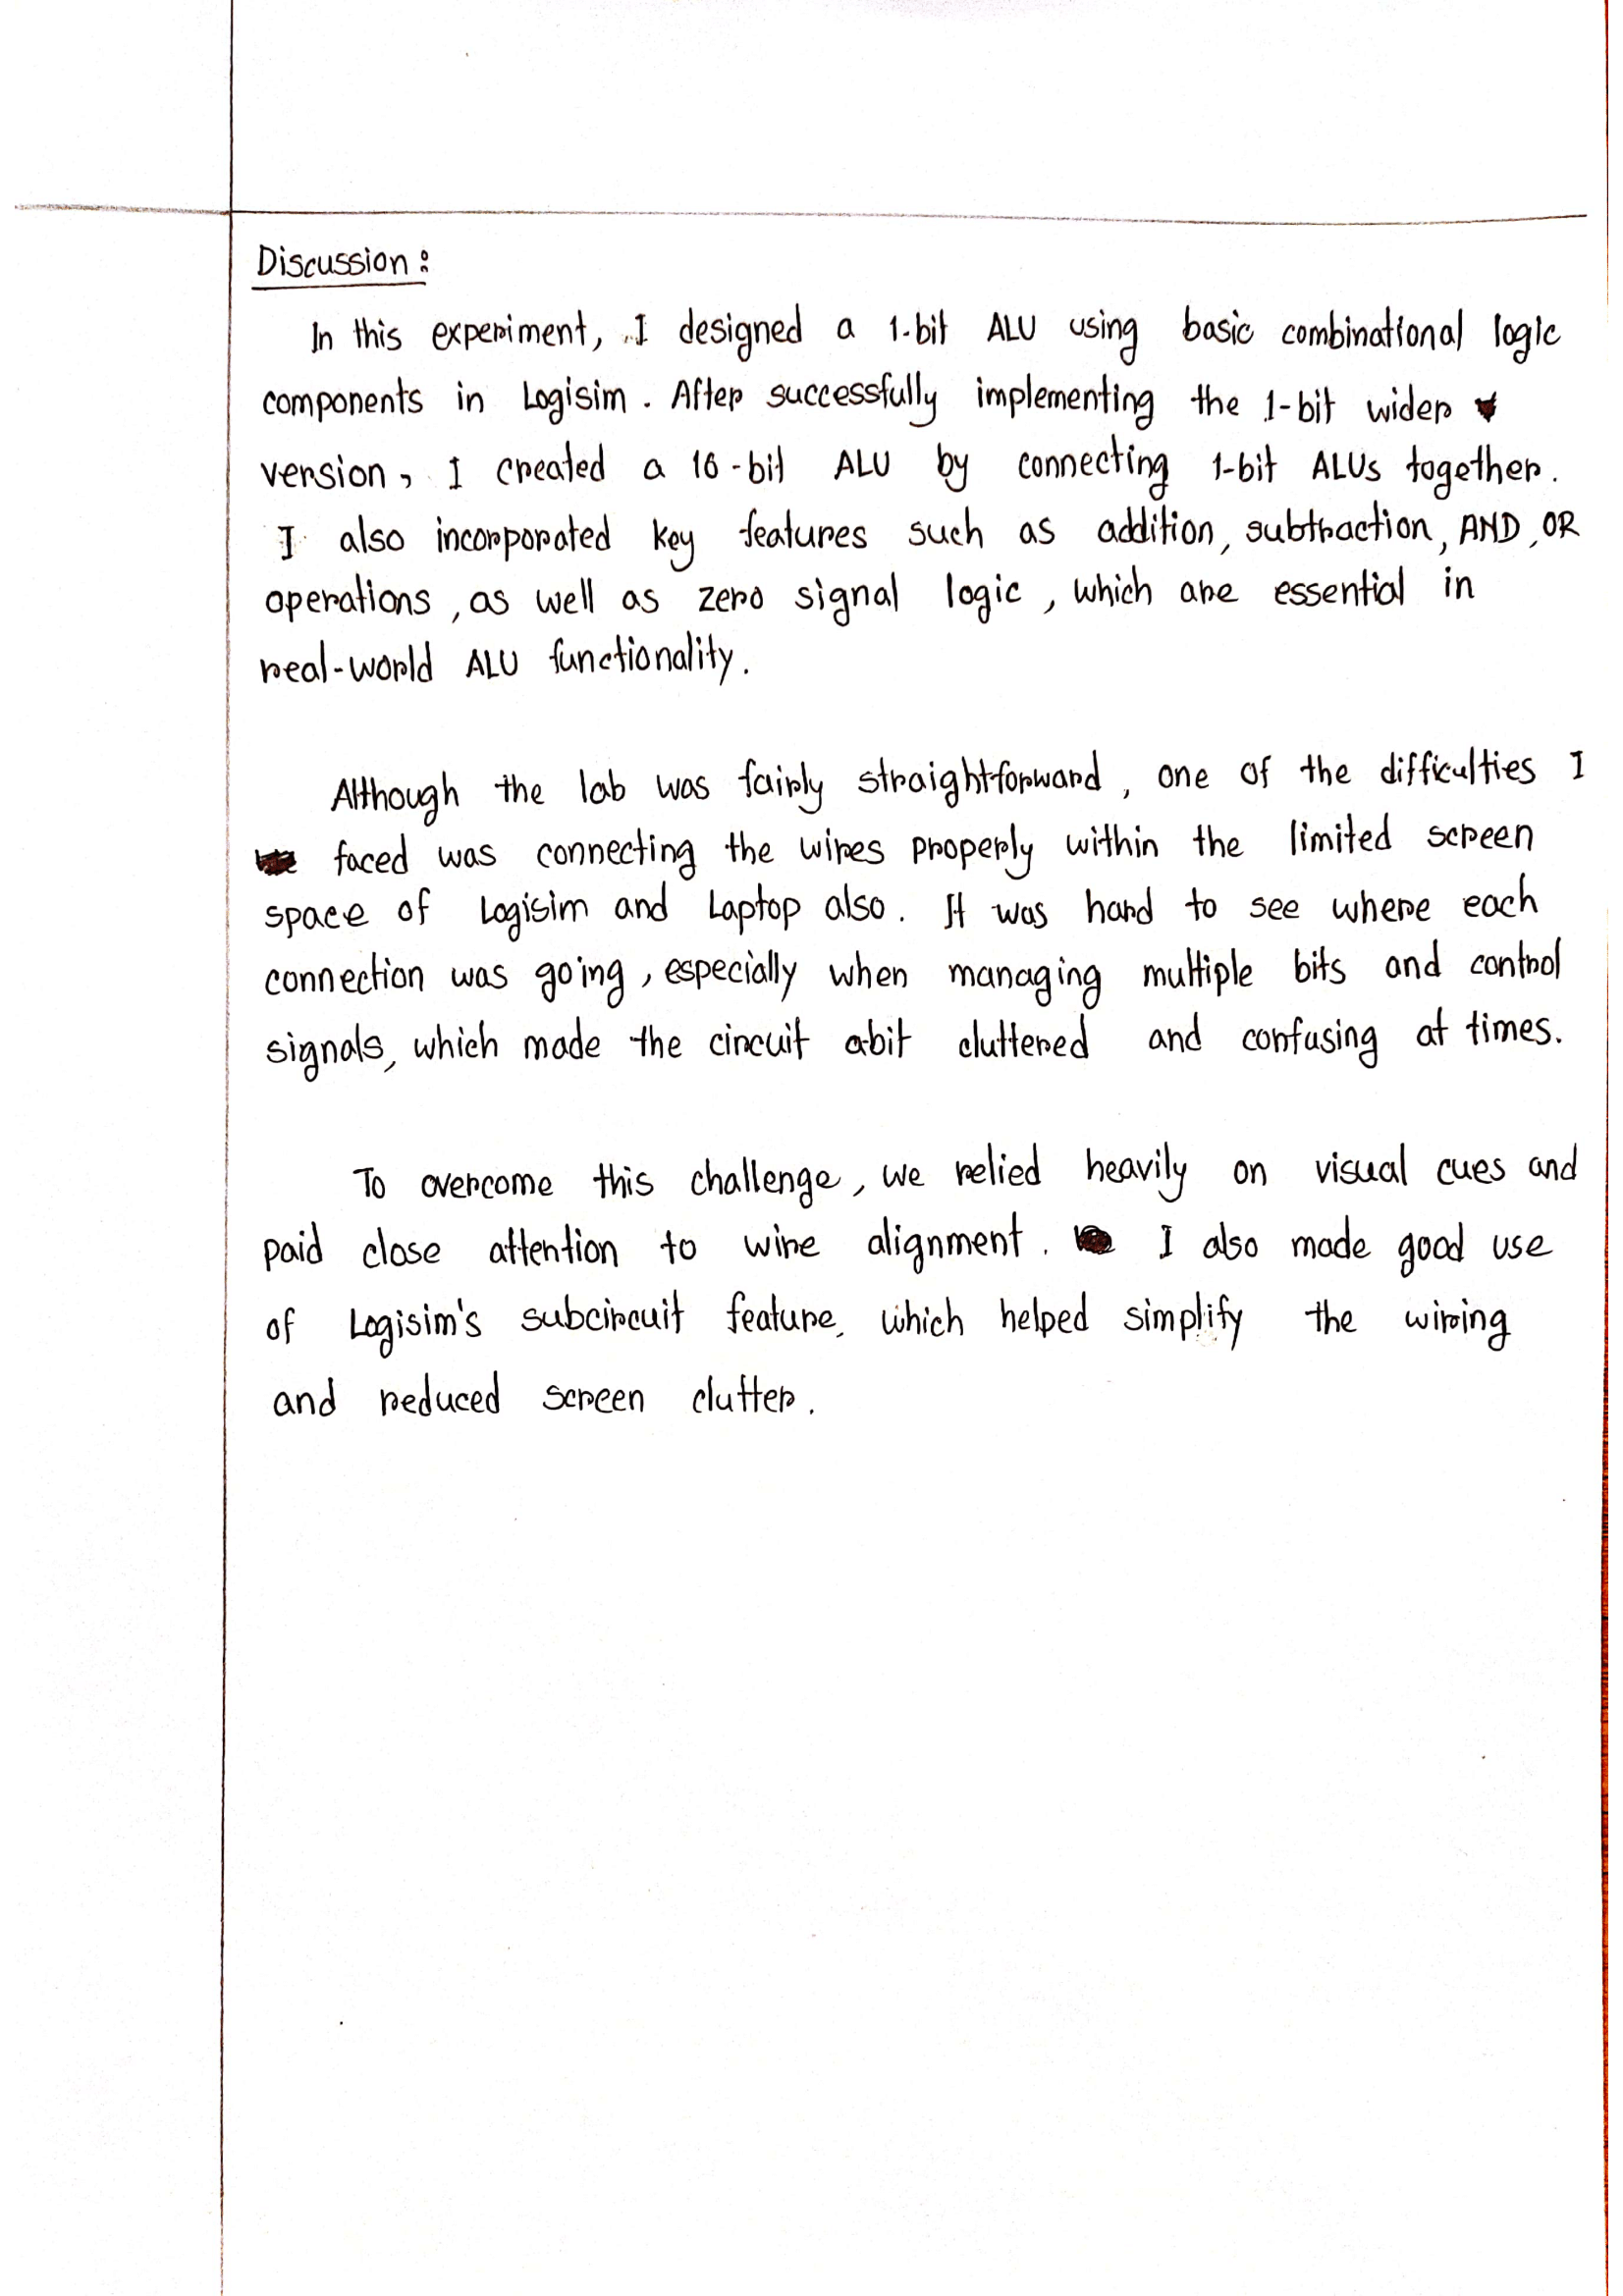 Discussion:
In this experiment, I designed a 1-bit ALU using basic combinational logic
components in Logisim. After successfully implementing the 1-bit wider
version, I created a 16-bit ALU by connecting 1-bit ALUs together.
I also incorporated key features such as addition, subtraction, AND, OR
operations, as well as zero signal logic, which are essential in
real-world ALU functionality.
Although the lab was fairly straightforward, one of the difficulties I
faced was connecting the wires properly within the limited screen
space of Logisim and Laptop also. It was hard to see where each
connection was going, especially when managing multiple bits and control
signals, which made the circuit a bit cluttered and confusing at times.
To overcome this challenge, we relied heavily on visual cues and
paid close attention to wire alignment. I also made good use
of Logisim's subcircuit feature, which helped simplify the wiring
and reduced screen clutter.